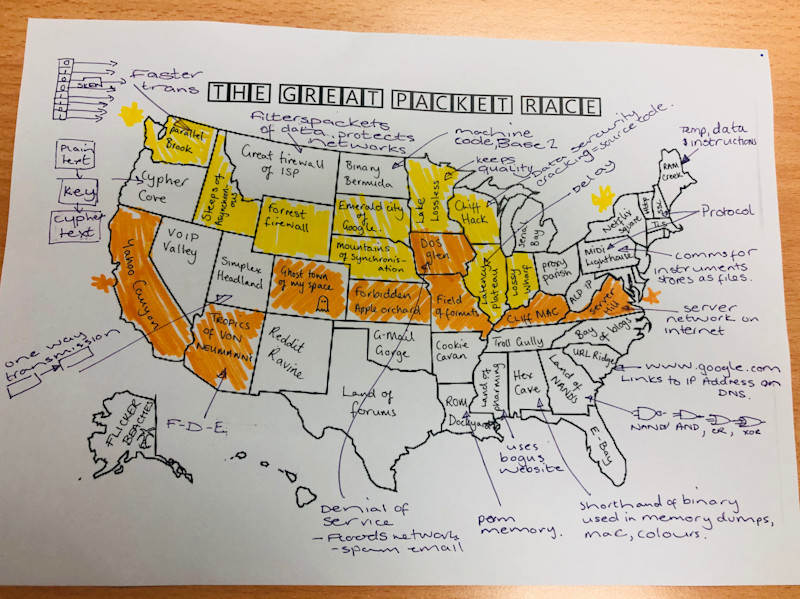 THE GREAT PACKET RACE
0
1
0
1
Faster
trans
Plain
text
key
cypher
text
Filterspackets
of data. protects
networks
machine
code, Base 2
keeps
quality
Data sercurity
cracking = source code.
Delay
Temp, data
& instructions
Protocol
comms for
instruments
stores as files.
server
network on
internet
www.google.com
Links to IP Address on
DNS.
NAND, AND, OR, XOR
one way
transmission
F-D-E
Denial of
service
- Floods network
- spam email
perm
memory.
uses
bogus
website
Shorthand of binary
used in memory dumps,
mac, colours.
parallel
Brook
Cypher
Cove
Great firewall of
ISP
Binary
Bermuda
Lake
Lossless
Cliff
Hack
Serial
Bay
RAM
Creek
Forrest
firewall
Emerald city of
Google.
mountains
of synchronis-
ation
DOS
Glen
Latency
plateau
Lossy
Wharf
proxy
parish
Midi
Lighthouse
Yahoo Canyon
VOIP
Valley
Simplex
Headland
Ghost town
of my space
Forbidden
Apple orchard
Field
of formats
Cliff MAC
Server
Hill
Bay of blogs
Troll Gully
URL Ridge
TROPICS
OF VON
NEUMANN
Reddit
Ravine
G-Mail
Gorge
Cookie
Cavan
Land of
forums
ROM
Dockyard
Land of
pharming
Hex
Cave
Land of
NANDs
E-Bay
FLICKER
BEACHES